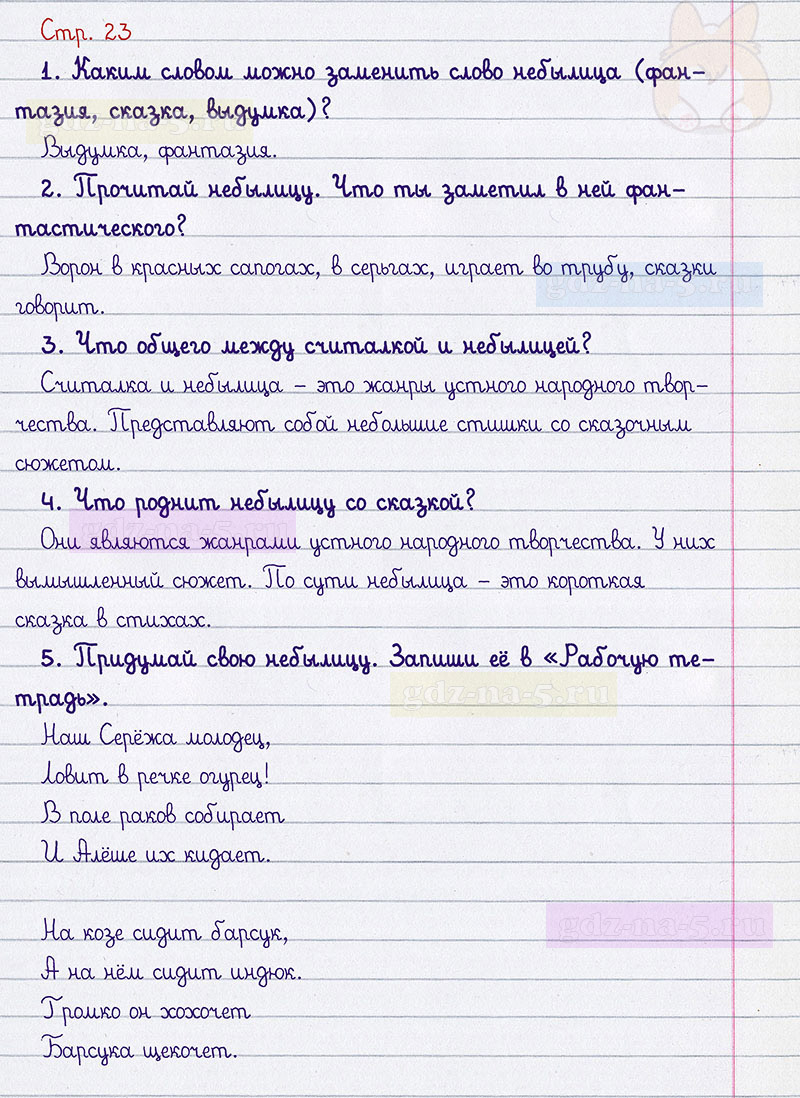 Стр. 23
1. Каким словом можно заменить слово небылица (фан-
тазия, сказка, выдумка)?
gdz-na-5.ru
Выдумка, фантазия.
2. Прочитай небылицу. Что ты заметил в ней фан-
тастического?
Ворон в красных сапогах, в серьгах, играет во трубу, сказки
gdz-na-5.ru
говорит.
3. Что общего между считалкой и небылицей?
Считалка и небылица – это жанры устного народного твор-
чества. Представляют собой небольшие стишки со сказочным
сюжетом.
4. Что роднит небылицу со сказкой?
gdz-na-5.ru
Они являются жанрами устного народного творчества. У них
вымышленный сюжет. По сути небылица – это короткая
сказка в стихах.
5. Придумай свою небылицу. Запиши её в «Рабочую те-
gdz-na-5.ru
традь».
Наш Серёжа молодец,
Ловит в речке огурец!
В поле раков собирает
И Алёше их кидает.
gdz-na-5.ru
На козе сидит барсук,
А на нём сидит индюк.
Громко он хохочет
Барсука щекочет.